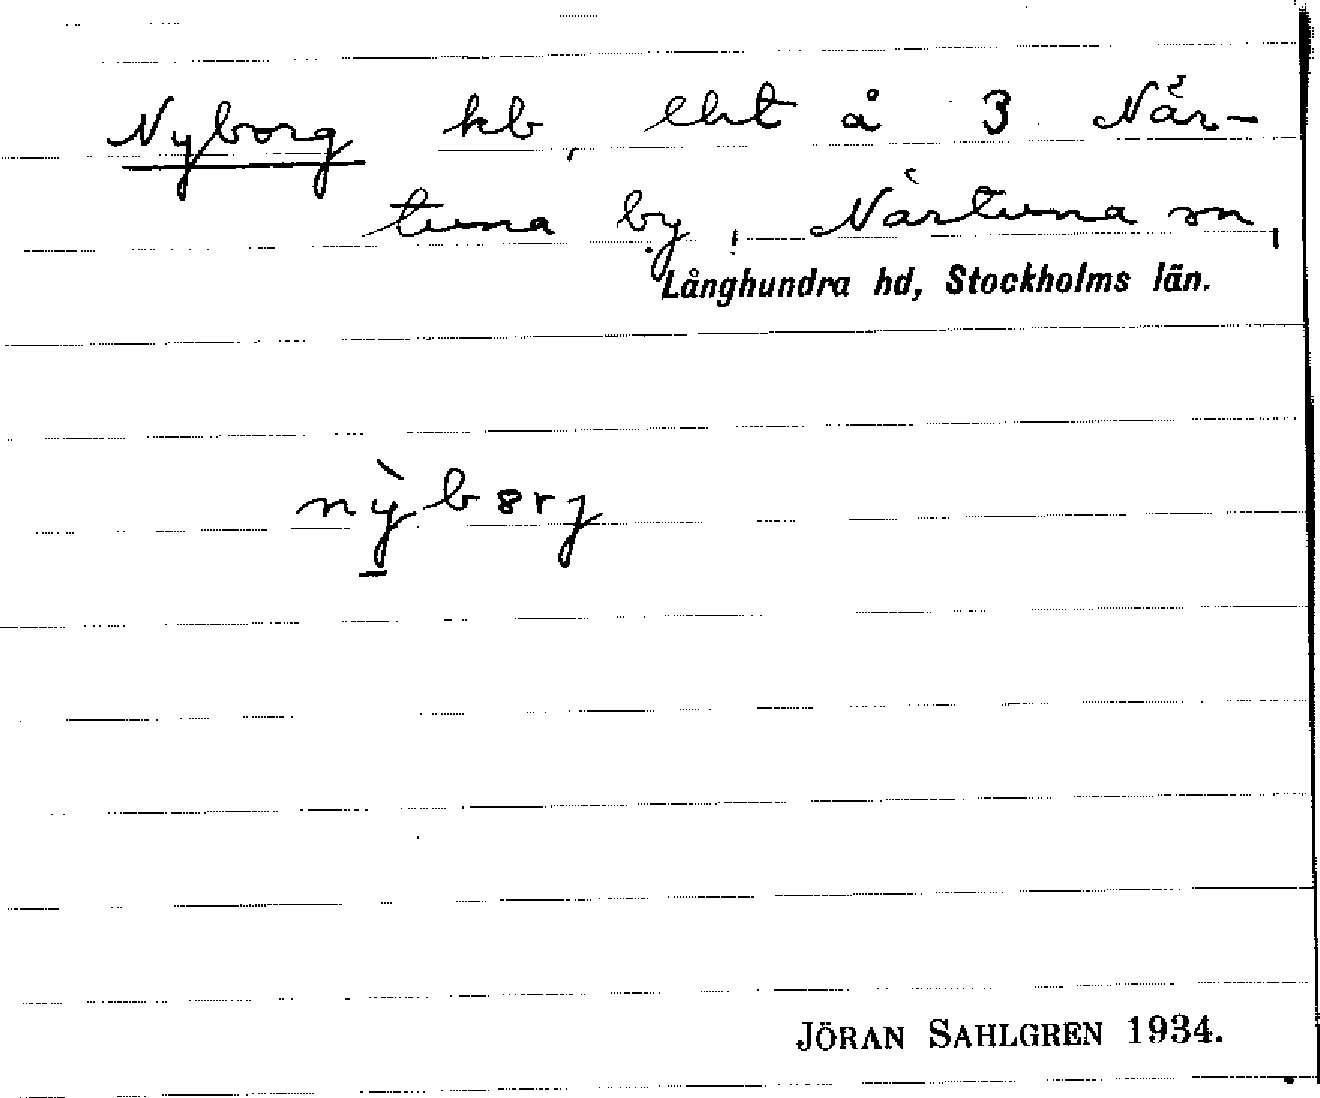 Nyborg kb, lht å 3 När-
tuna by, Närtuna sn,
Långhundra hd, Stockholms län.
nỳbȣrj
JÖRAN SAHLGREN 1934.